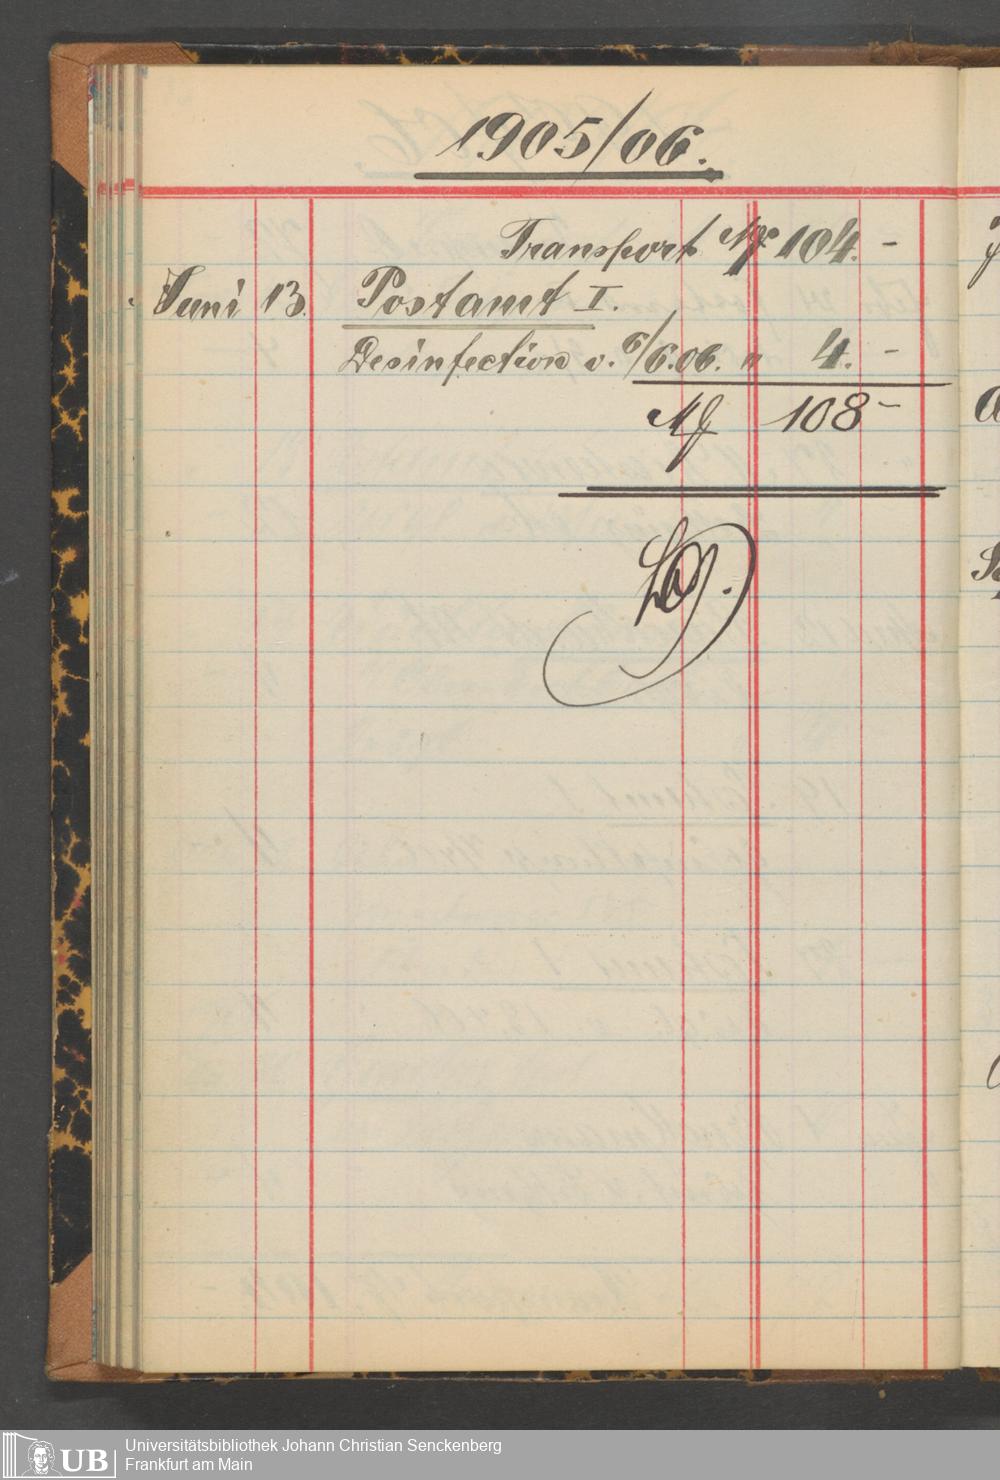 1905/06.
Transport M 104. -
Juni 13. Postamt I.
Desinfection v. 6/6.06. " 4. -
M 108 -
UB Universitätsbibliothek Johann Christian Senckenberg
Frankfurt am Main